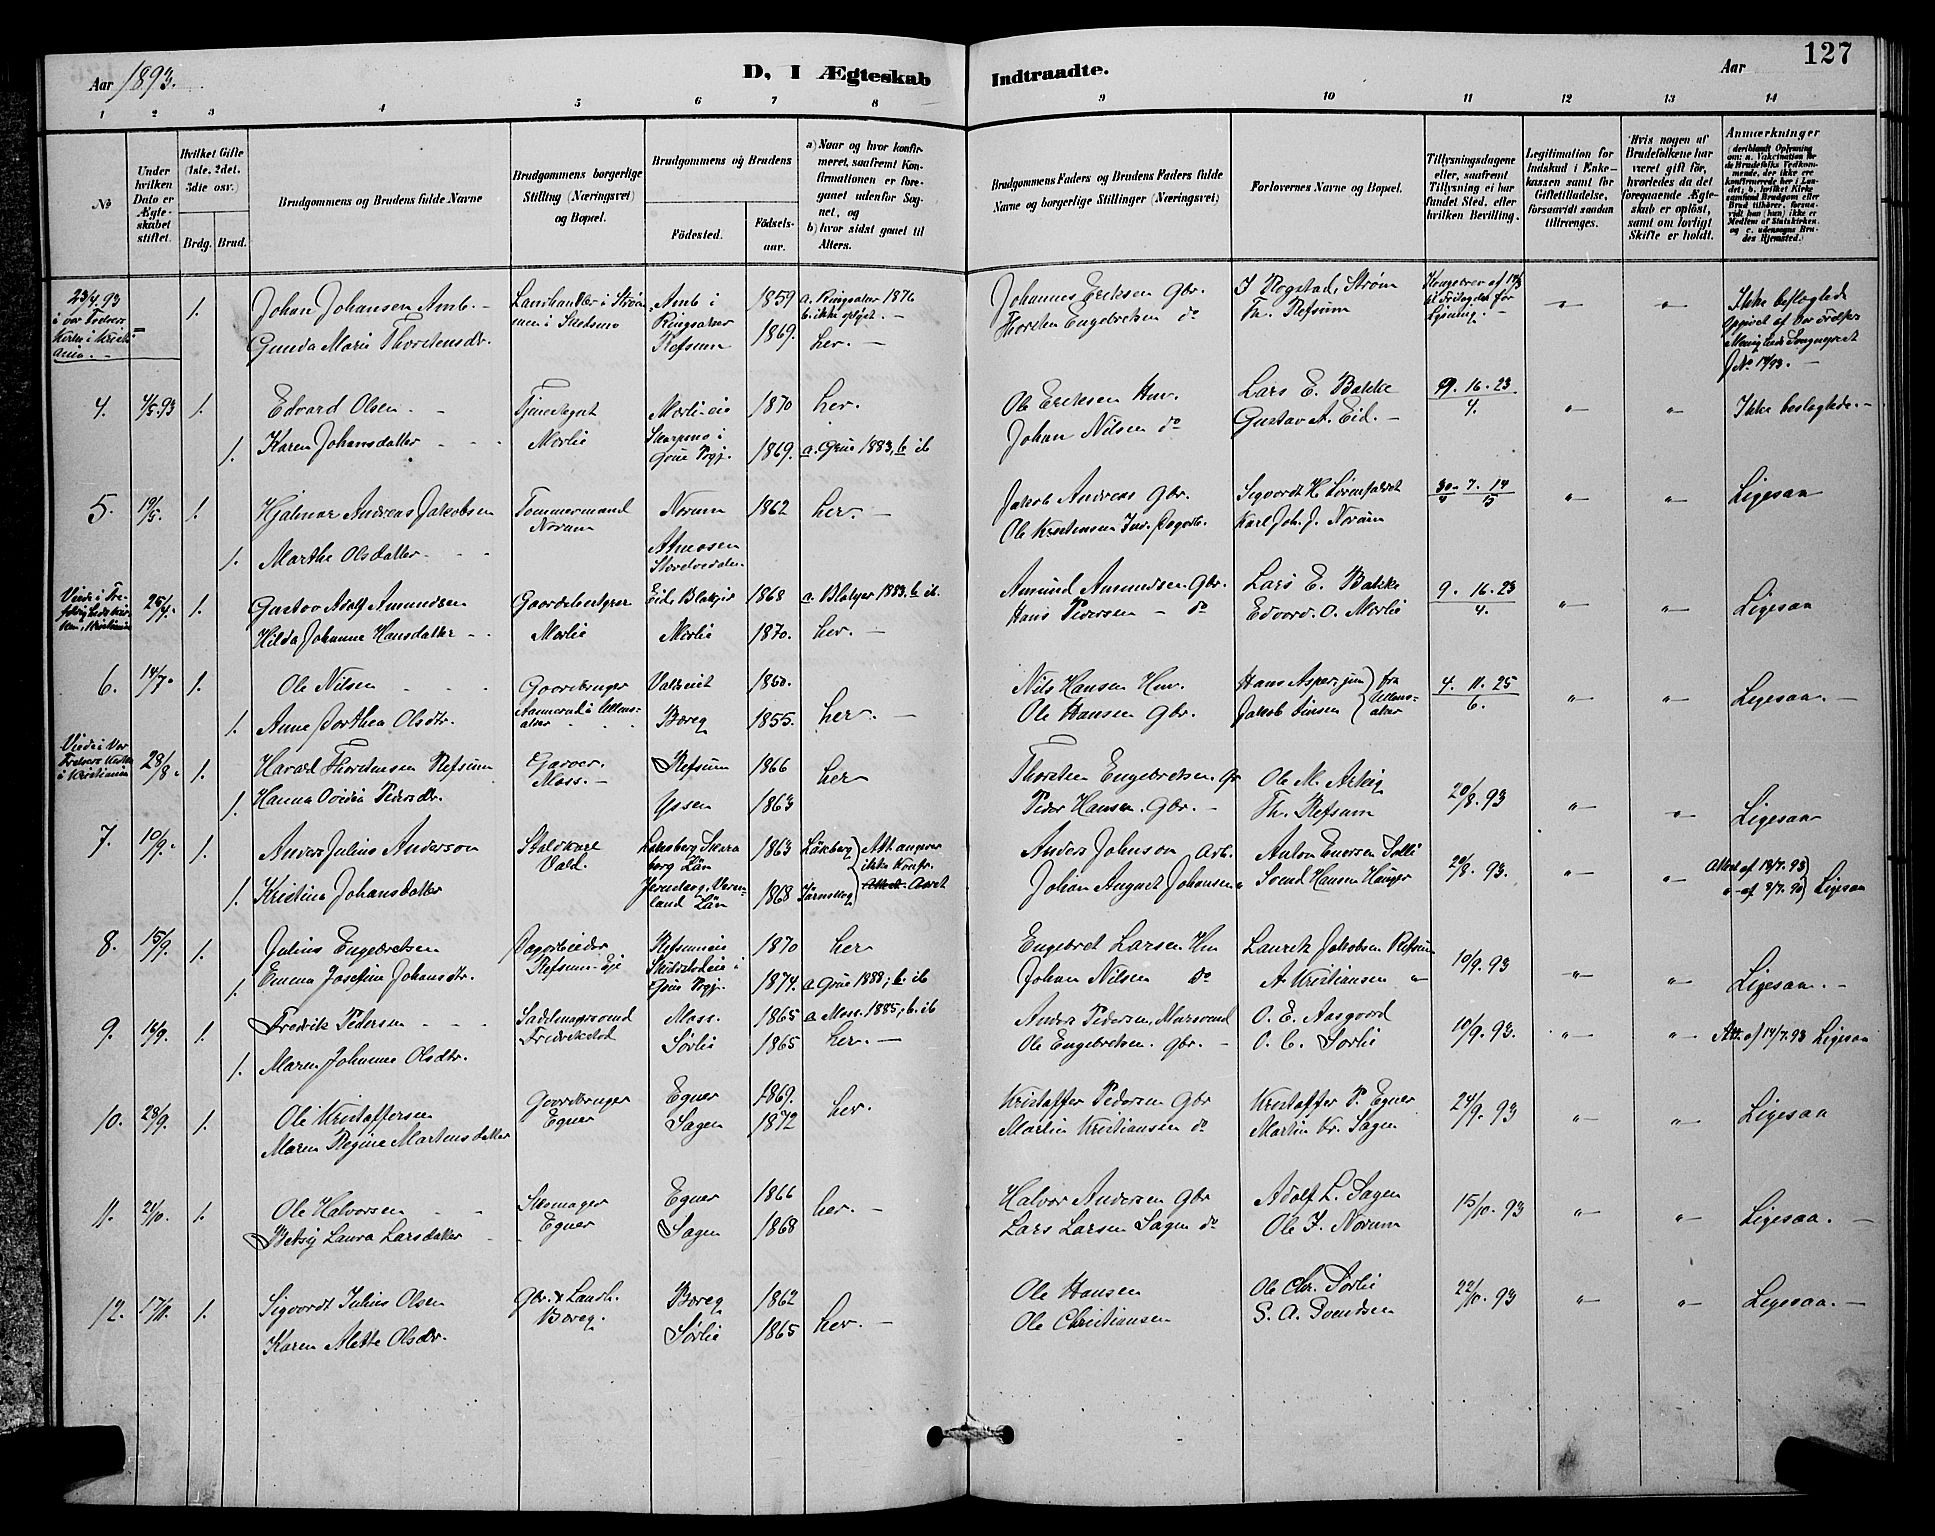 127
Aar 1893.
D, I Ægteskab Indtraadte.
Aar
1 2 3 4 5 6 7 8 9 10 11 12 13 14
No
Under hvilken Dato er Ægteskabet stiftet.
Hvilket Gifte (1ste, 2det, 3die osv.)
Brdg. Brud.
Brudgommens og Brudens fulde Navne
Brudgommens borgerlige Stilling (Næringsvei) og Bopæl.
Brudgommens og Brudens
Födested.
Födselsaar.
a) Naar og hvor konfirmeret, saafremt Konfirmationen er foregaaet udenfor Sognet, og
b) hvor sidst gaaet til Alters.
Brudgommens Faders og Brudens Faders fulde Navne og borgerlige Stillinger (Næringsvei)
Forlovernes Navne og Bopæl.
Tillysningsdagene eller, saafremt Tillysning ei har fundet Sted, efter hvilken Bevilling.
Legitimation for Indskud i Enkekassen samt for Giftetilladelse, forsaavidt saadan tiltrænges.
Hvis nogen af Brudefolkene har været gift för, hvorledes da det foregaaende Ægteskab er oplöst, samt om lovligt Skifte er holdt.
Anmærkninger
(deriblandt Oplysning om: a. Vakcination for de Brudefolks Vedkommende, der ikke ere konfirmerede her i Landet; b. hvilket Kirkesamfund Brudgom eller Brud tilhörer, forsaavidt han (hun) ikke er Medlem af Statskirken, og c. udensogns Brudes Hjemsted.)
23/4 93 i vor Frelsers Kirke i Kristiania.
1. Johan Johansen Amb. Landhandler i Strømmen i Skedsmo Amb i Ringsaker 1859 a. Ringsaker 1876 b. ikke oplyst. Johannes Eriksen Gbr. I Rogstad, Strøm
Gunda Marie Thorstensdr. Refsum 1869. her. Thorsten Engebretsen do Th. Refsum
Ikke beslægtede
4. 4/5 93 1. Edvard Olsen Tjenestegut Merli-eie 1870 her. Ole Eriksen Hm. Lars E. Bakke 9. 16. 23/4. Ikke beslægtede.
1. Karen Johansdatter Merlie i Grue Pgj. 1869. a. Grue 1883, b ib Johan Nilsen do Gustav A. Eid.
5. 19/5. 1. Hjalmar Andreas Jakobsen Tømmermand Norum Norum 1862 her. Jakob Andreas Gbr. 30/4 7. 14/5 Ligesaa
1. Marthe Olsdatter Ole Kristensen Ind. Dagarb. Karl Joh. J. Norum
25/4. 1. Gustav Adolf Amundsen Gaardsbestyrer Eid, Blakjer 1868 a. Blakjer 1883. b ib. Amund Amundsen Gbr. Lars E. Bakke 9. 16. 23/4. Ligesaa
Hilda Johanne Hansdatter Merlie Merlie 1870. her. Hans Pedersen do Edvard. O. Merlie
6. 14/7. 1. Ole Nilsen Gaardbruger 1850. Nils Hansen Hm. Hans Asper, jun fra Ullensaker 4. 11. 25/6. Ligesaa.
1. Anne Dorthea Olsdtr. i Ullensaker Boreg 1855. her. Ole Hansen Gbr. Jakob
Viede i Vor Frelsers Kirke i Kristiania 28/8. 1. Harald Thorstensen Refsum Garver. Moss. Refsum 1866 her Thorsten Engebretsen. Gbr Ole M. 20/8. 93 Ligesaa
1. Hanna Ovidia Pedersdr. Yssen 1863 Peder Hansen. Gbr. Th. Refsum
7. 10/9. 1. Anders Julius Anderson Staldkarl Vald. 1863 Att. angiver ikke Konfr. Anders Johnson, Arb. Anton Enersen Solli 20/8. 93. Ligesaa
1. Kristina Johansdatter Vermland Län 1868 Järnskog Johan August Johansen Svend Hansen Hauger
8. 15/9. 1. Julius Engebretsen Dagarbeider Refsum-Eje Refsumeie 1870 her Engebret Larsen Hm Lauritz Jakobsen Refsum 10/9. 93 Ligesaa.
1. Emma Josefine Johansdtr. i Grue Pgj. 1874. a Grue 1888; b. ib Johan Nilsen do A. Kristiansen "
9. 16/9. 1. Fredrik Pedersen Fredrikstad Moss. 1865 a. Moss. 1885; b. ib Anders Pedersen, O. E. Aasgaard 10/9. 93. Att. af 14/7. 93 Ligesaa
1. Maren Johanne Olsdtr. Sørlie 1865 her. Ole Engebretsen. gbr. O. C. Sørlie
10. 28/9. 1. Ole Kristoffersen Gaardbruger Egner Egner 1869. her. Kristoffer Pedersen Gbr Kristoffer P. Egner 24/9. 93 Ligesaa
Maren Regine Martensdatter Sagen 1872 Martin Kristiansen do Martin Kr. Sagen
11. 21/10. 1. Ole Halvorsen Skomager Egner Egner 1866 her. Halvor Andersen Gbr Adolf L. Sagen 15/10. 93 Ligesaa.
Betsy Laura Larsdatter Sagen 1868 Lars Larsen Sagen do Ole J. Norum
12. 17/11. 1. Sigvardt Julius Olsen Gbr. & Landh. Boreg. Boreg 1862 her. Ole Hansen Ole Chr. Sørlie 22/10. 93 Ligesaa.
Karen Alette Olsdtr. Sørlie 1865 Ole Christiansen S. A. Svendsen